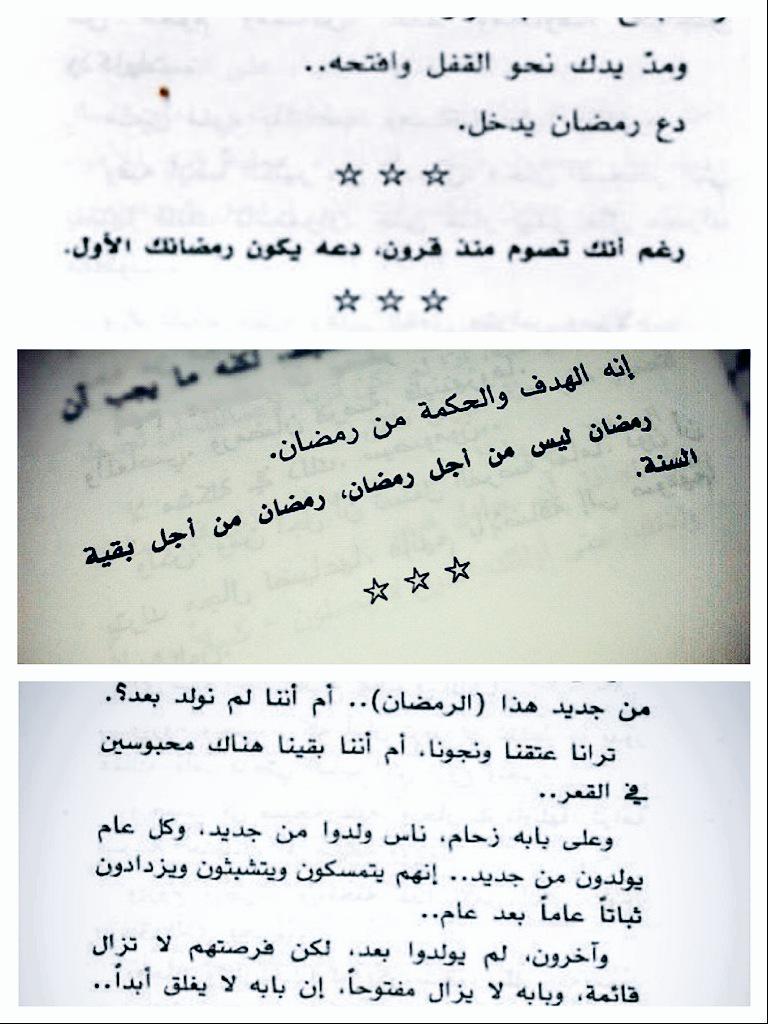 ومدّ يدك نحو القفل وافتحه..
دع رمضان يدخل.
☆ ☆ ☆
رغم أنك تصوم منذ قرون، دعه يكون رمضانك الأول.
☆ ☆ ☆
لكنه ما يجب أن
إنه الهدف والحكمة من رمضان.
رمضان ليس من أجل رمضان، رمضان من أجل بقية
السنة.
☆ ☆ ☆
من جديد هذا (الرمضان).. أم أننا لم نولد بعد؟.
ترانا عتقنا ونجونا، أم أننا بقينا هناك محبوسين
في القعر..
وعلى بابه زحام، ناس ولدوا من جديد، وكل عام
يولدون من جديد.. إنهم يتمسكون ويتشبثون ويزدادون
ثباتاً عاماً بعد عام..
وآخرون، لم يولدوا بعد، لكن فرصتهم لا تزال
قائمة، وبابه لا يزال مفتوحاً، إن بابه لا يغلق أبداً..